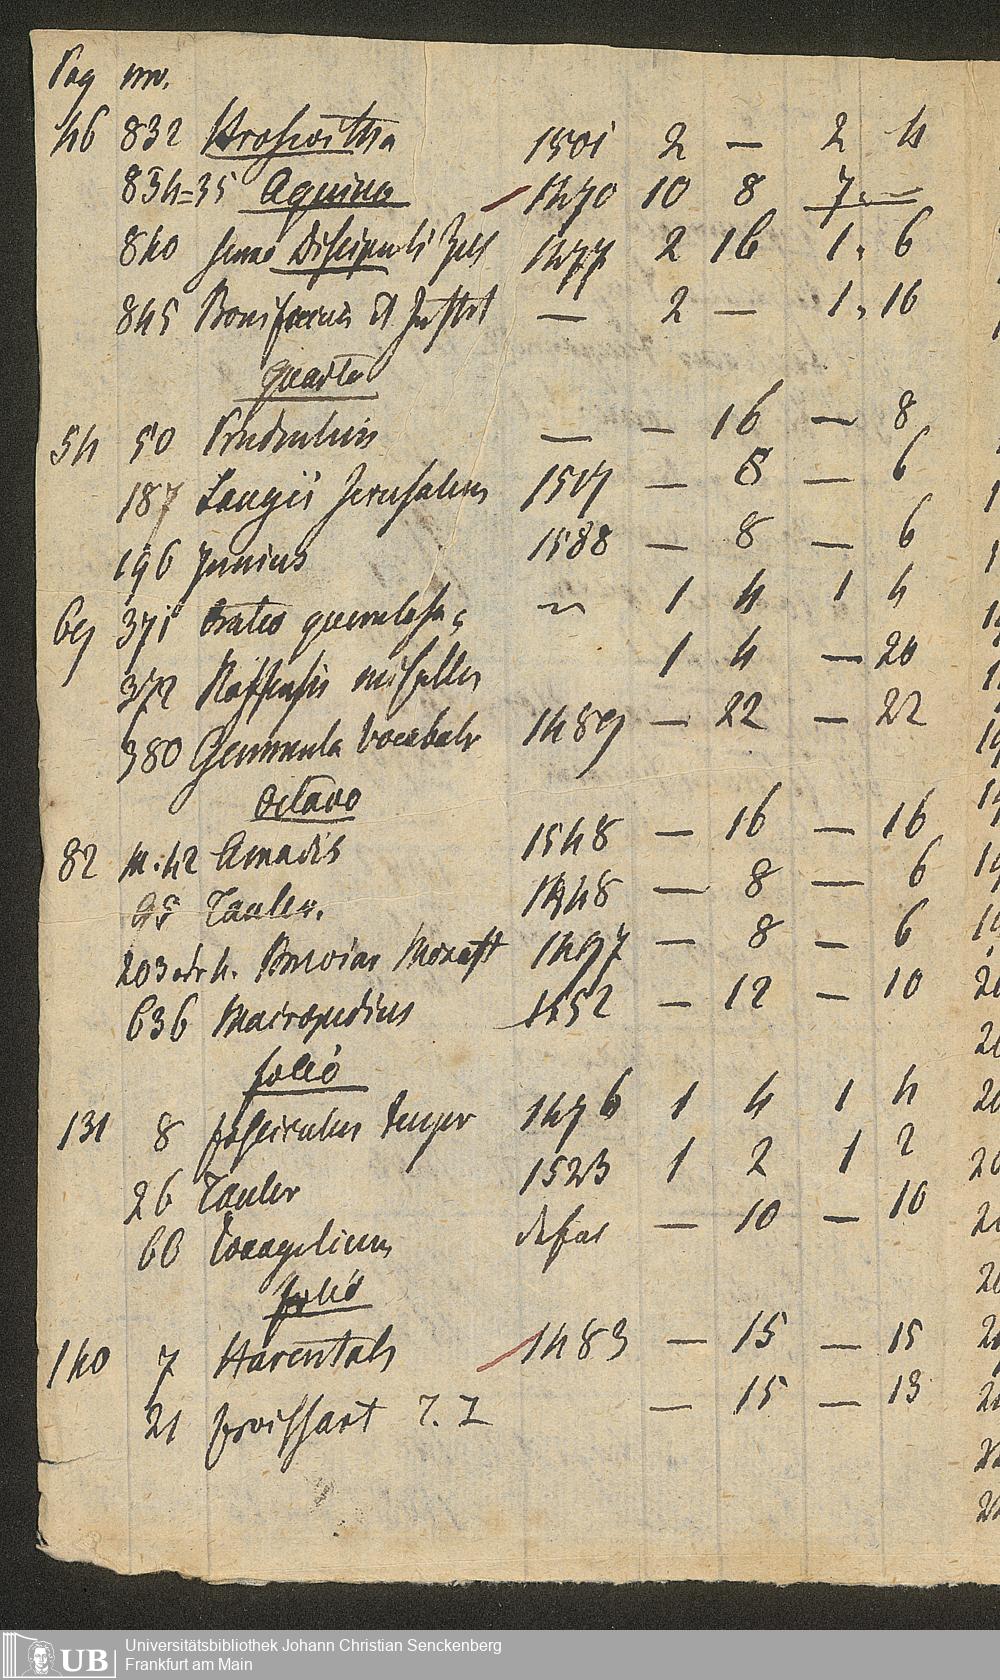 Pag nro.
46 832 Hroswitha 1501 2 — 2 4
834=35 Aquino 1470 10 8 7. —
840 Sermo Discipuli 1477 2 16 1. 6
845 Bonifacius 2 — 1. 16
quarto
54 50 Prudentius — — 16 — 8
187 Langii Jerusalem 1517 — 8 — 6
196 Junius 1588 — 8 — 6
69 371 Oratio querulosa 1 4 1 4
372 Roffensis 1 4 — 20
380 Gemmula Vocabulor 1489 — 22 — 22
Octavo
82 m. 42 Amadis 1548 — 16 — 16
95 Tauler. 1548 — 8 — 6
203 odr 4. Breviar Monast 1497 — 8 — 6
636 Macropedius 1552 — 12 — 10
folio
131 8 fasciculus temper 1476 1 4 1 4
26 Tauler 1523 1 2 1 2
66 Evangelium defec — 10 — 10
folio
140 7 Harentals 1483 — 15 — 15
21 froissart T. I — 15 — 13
UB Universitätsbibliothek Johann Christian Senckenberg
Frankfurt am Main